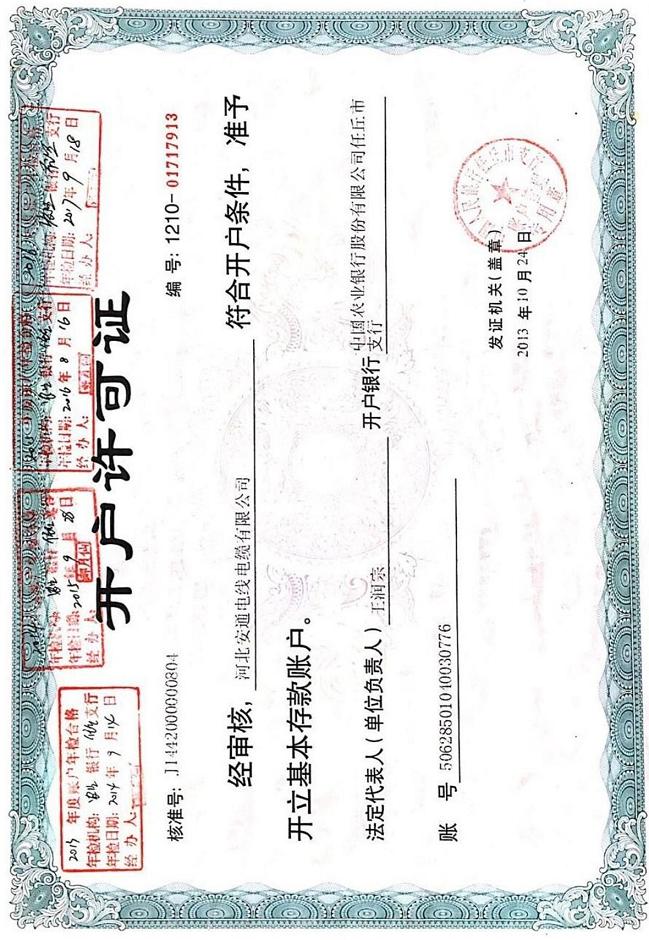 开户许可证
核准号: J1442000000804
编号: 1210-01717913
经审核, 河北安通电线电缆有限公司 符合开户条件, 准予
开立基本存款账户。
法定代表人(单位负责人) 王润宗 开户银行 中国农业银行股份有限公司任丘市
支行
账 号 50628501040030776
发证机关(盖章)
2013 年 10 月 24 日
2013 年度账户年检合格
年检机构: 银行 支行
年检日期: 2014 年 9 月 14 日
经 办 人:
年检日期: 2015 9 月 28 日
经 办 人:
年检机构: 银行 支行
年检日期: 2016 年 8 月 16 日
经 办 人:
银行 支行
年检日期: 2017 年 9 月 18 日
经 办 人: